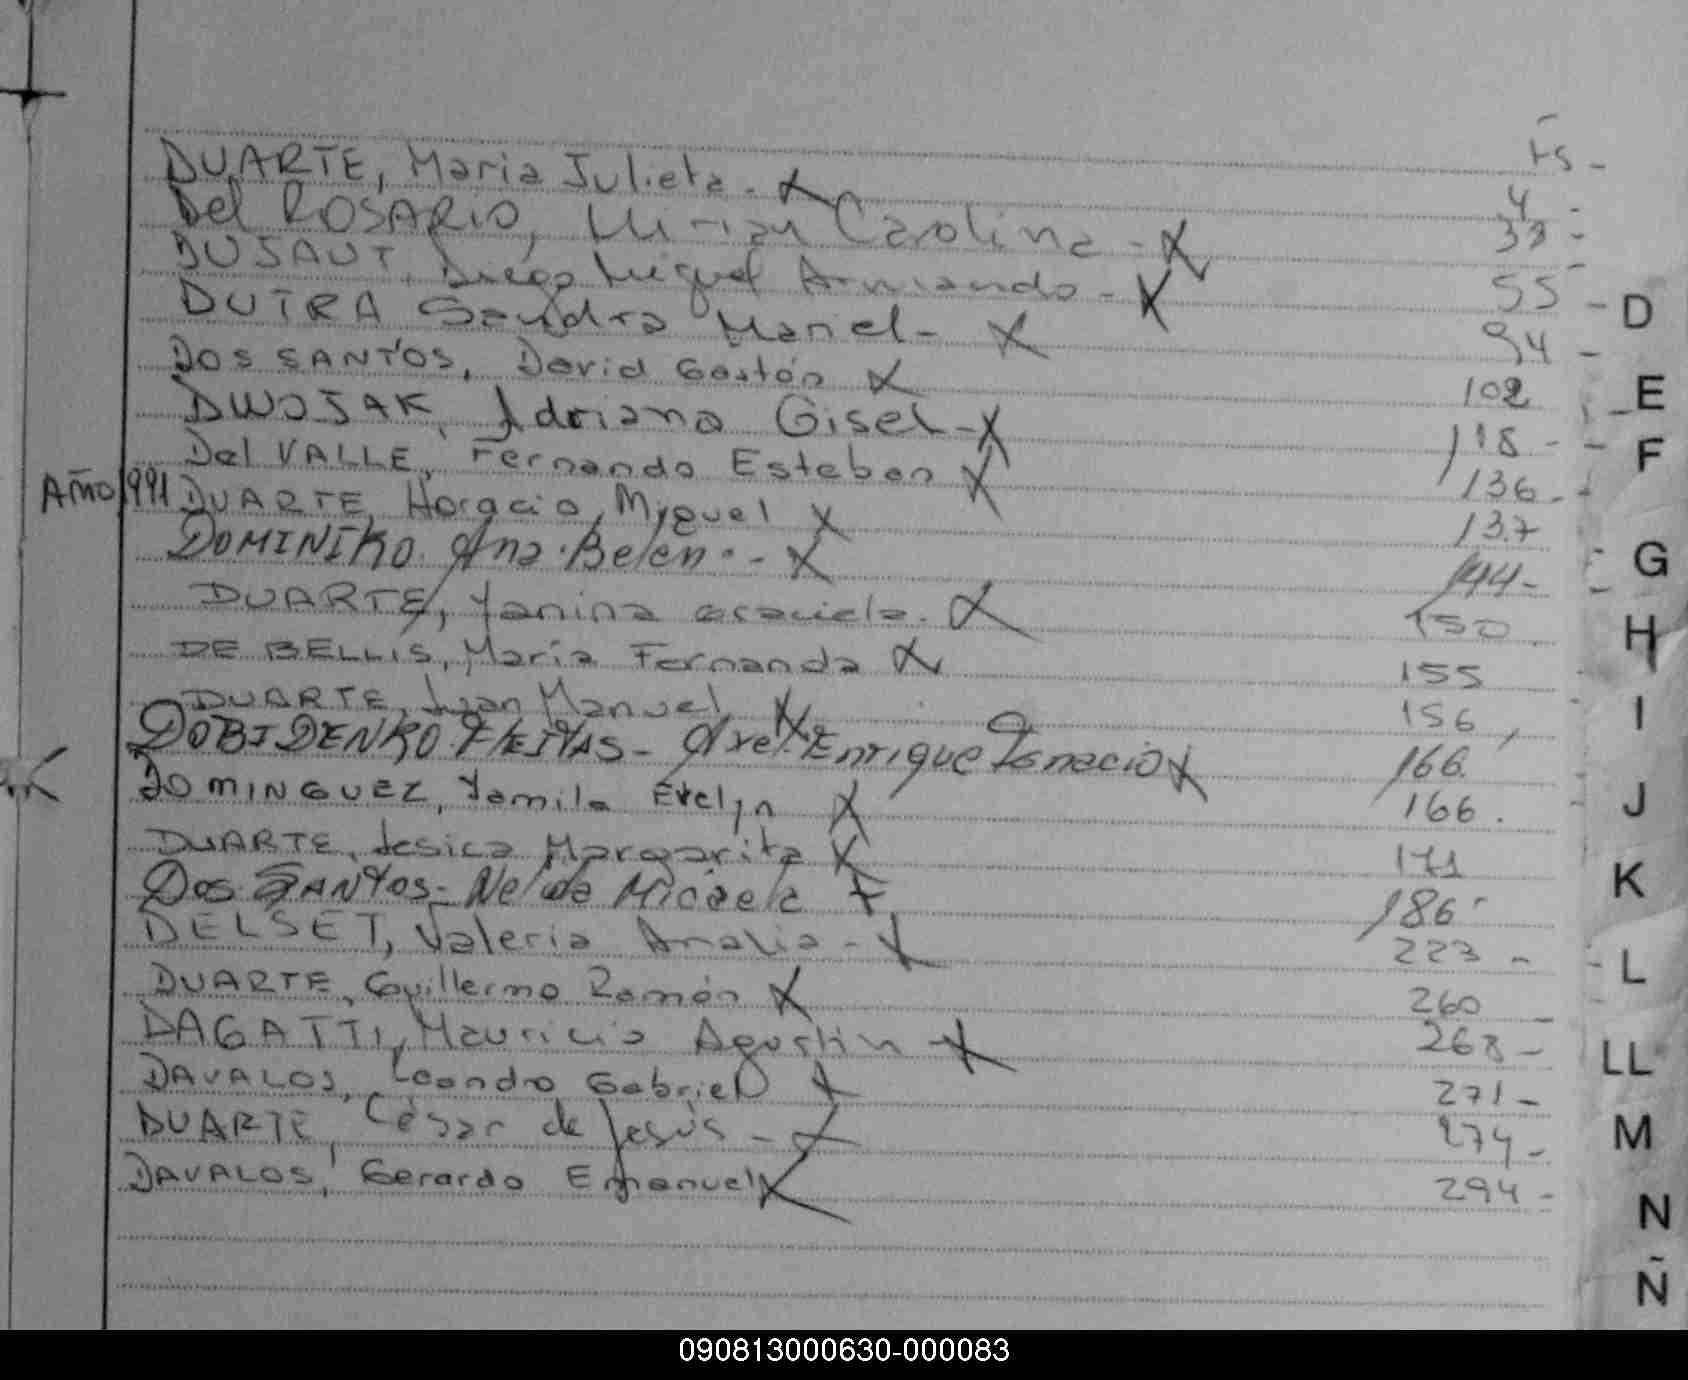 Fs -
DUARTE, Maria Julieta - X 4 -
Del ROSARIO, Mirian Carolina - X 38 -
DUSAUT, Diego Miguel Armando - X 55 -
DUTRA Sandra Mariel - X 94 -
DOS SANTOS, David Gastón X 102
DWOJAK, Adriana Gisel - X 118 -
Del VALLE, Fernando Esteban X 136 -
Año 1991 DUARTE, Horacio, Miguel X 137
DOMINIKO. Ana Belen - X 144 -
DUARTE, Yanina Graciela. X 150
DE BELLIS, María Fernanda X 155
DUARTE, Juan Manuel X 156
DOBIDENKO FLEITAS - Axel Enrique Ignacio X 166.
DOMINGUEZ, Yamila Evelyn X 166.
DUARTE, Jesica Margarita X 171
DOS SANTOS - Nelida Micaela X 186
DELSET, Valeria Analia - X 223 -
DUARTE, Guillermo Ramón X 260 -
DAGATTI, Mauricio Agustín - X 268 -
DAVALOS, Leandro Gabriel X 271 -
DUARTE, César de Jesús - X 274 -
DAVALOS, Gerardo Emanuel X 294 -
D
E
F
G
H
I
J
K
L
LL
M
N
Ñ
090813000630-000083